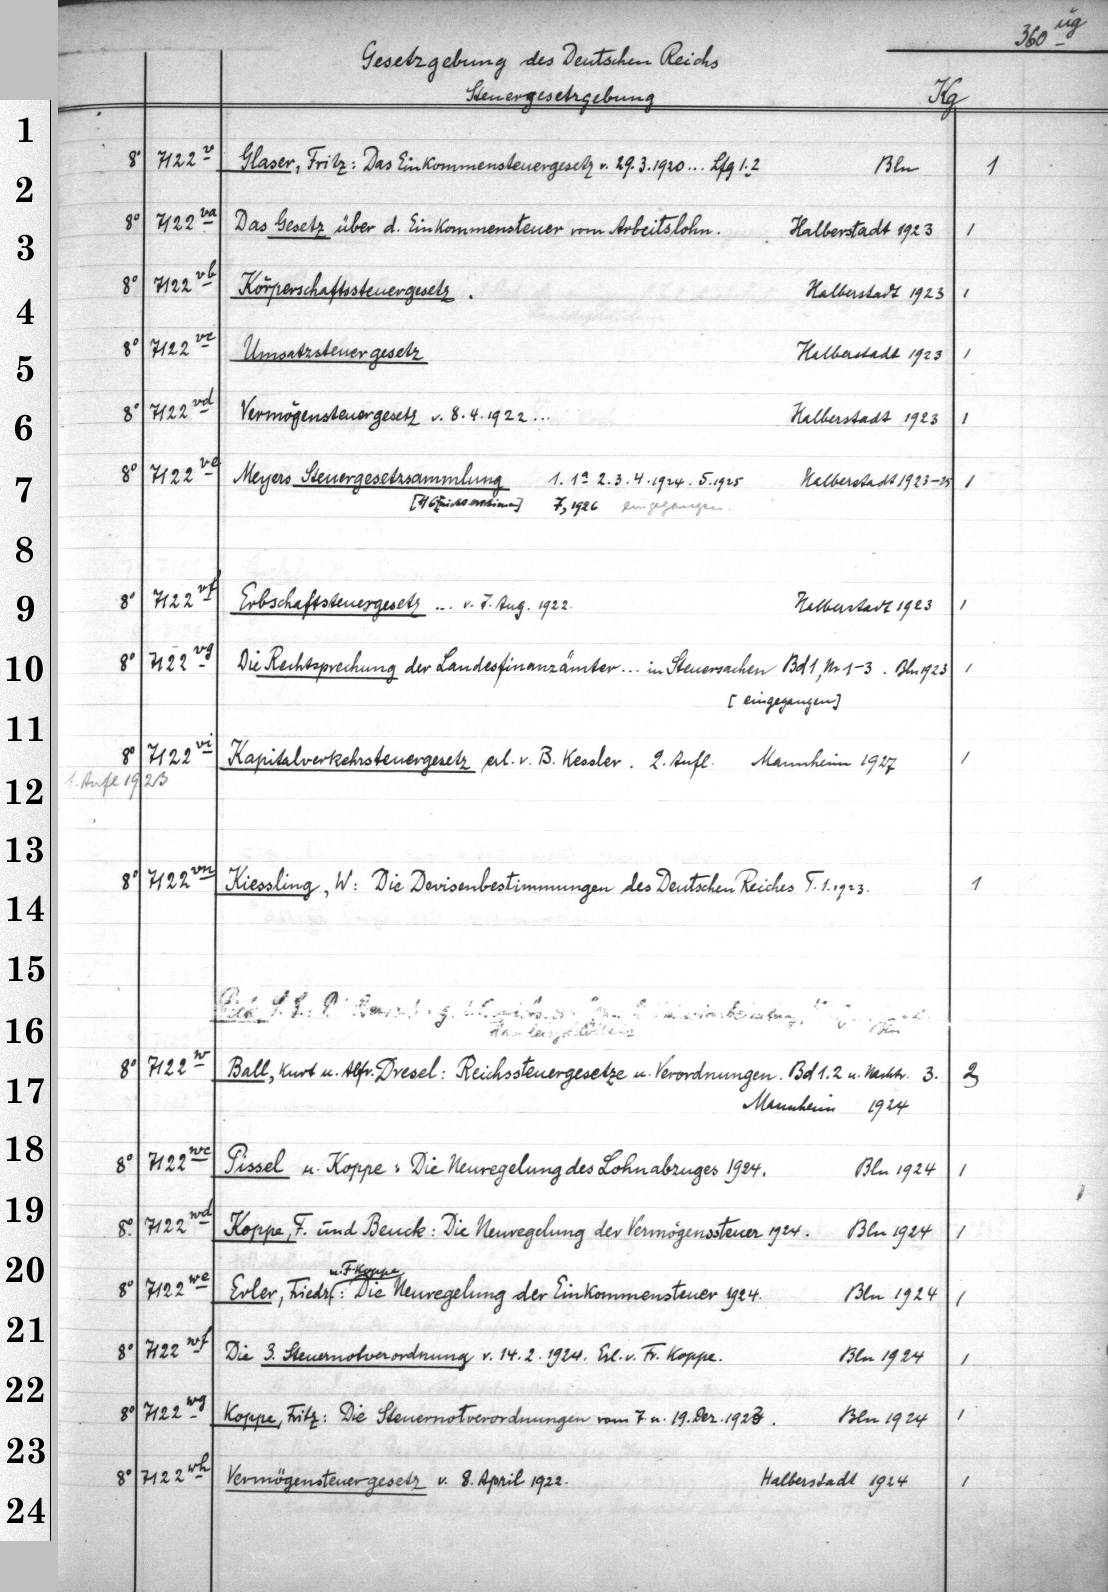 360 üg
Gesetzgebung des Deutschen Reichs
Steuergesetzgebung Kg
1
8° 7122 v Glaser, Fritz: Das Einkommensteuergesetz v. 29.3.1920... Lfg 1.2 Bln 1
2
8° 7122 va Das Gesetz über d. Einkommensteuer vom Arbeitslohn. Halberstadt 1923 1
3
8° 7122 vb Körperschaftssteuergesetz. Halberstadt 1923 1
4
8° 7122 vc Umsatzsteuergesetz Halberstadt 1923 1
5
8° 7122 vd Vermögensteuergesetz v. 8.4.1922... Halberstadt 1923 1
6
8° 7122 ve Meyers Steuergesetzsammlung 1. 1a 2. 3. 4. 1924. 5. 1925 Halberstadt 1923-25 1
7
7, 1926 eingegangen.
8
8° 7122 vf Erbschaftsteuergesetz ... v. 7. Aug. 1922. Halberstadt 1923 1
9
8° 7122 vg Die Rechtsprechung der Landesfinanzämter... in Steuersachen Bd 1, Nr 1-3. Bln 1923 1
10
[eingegangen]
11
8° 7122 vi Kapitalverkehrsteuergesetz erl. v. B. Kessler. 2. Aufl. Mannheim 1927 1
1. Aufl 1923
12
13
8° 7122 vn Kiessling, W: Die Devisenbestimmungen des Deutschen Reiches T. 1. 1923. 1
14
15
16
Bln
8° 7122 w Ball, Kurt u. Alfr. Dresel: Reichssteuergesetze u. Verordnungen. Bd 1.2 u. Nachtr. 3. 2
17
Mannheim 1924
18
8° 7122 wc Pissel u. Koppe: Die Neuregelung des Lohnabzuges 1924. Bln 1924 1
19
8° 7122 wd Koppe, F. und Beuck: Die Neuregelung der Vermögenssteuer 1924. Bln 1924 1
20
u. F. Koppe
8° 7122 we Erler, Friedr.: Die Neuregelung der Einkommensteuer 1924. Bln 1924 1
21
8° 7122 wf Die 3. Steuernotverordnung v. 14.2.1924. Erl. v. Fr. Koppe. Bln 1924 1
22
8° 7122 wg Koppe, Fritz: Die Steuernotverordnungen vom 7 u. 19. Dez. 1923. Bln 1924 1
23
8° 7122 wh Vermögensteuergesetz v. 8. April 1922. Halberstadt 1924 1
24